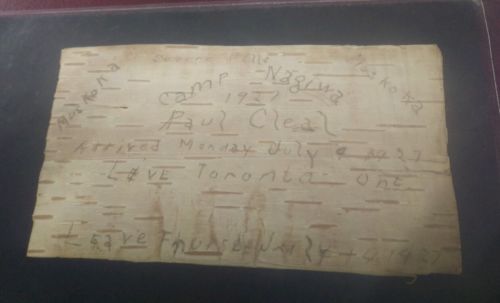 Muskoka
Camp Nagiwa
Muskoka
1927
Paul Cleal
Arrived Monday July 4 1927
Live Toronto Ont
Leave Thursday 1927